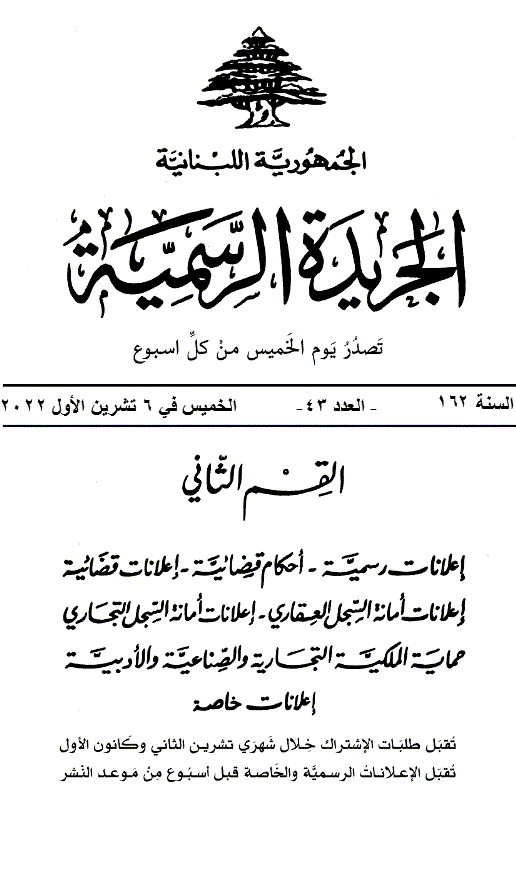 الجمهورية اللبنانية
الجريدة الرسمية
تصدر يوم الخميس من كل اسبوع
السنة ١٦٢ - العدد ٤٣ - الخميس في ٦ تشرين الأول ٢٠٢٢
القسم الثاني
إعلانات رسمية - أحكام قضائية - إعلانات قضائية
إعلانات أمانة السجل العقاري - إعلانات أمانة السجل التجاري
حماية الملكية التجارية والصناعية والأدبية
إعلانات خاصة
تقبل طلبات الإشتراك خلال شهري تشرين الثاني وكانون الأول
تقبل الإعلانات الرسمية والخاصة قبل أسبوع من موعد النشر